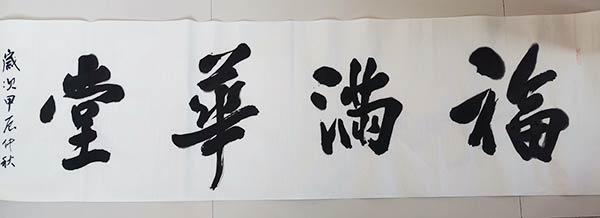 福滿華堂
歲次甲辰仲秋